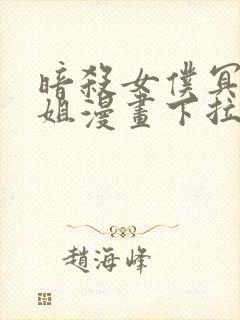 暗殺女僕冥
姐漫畫下拉
趙海峰